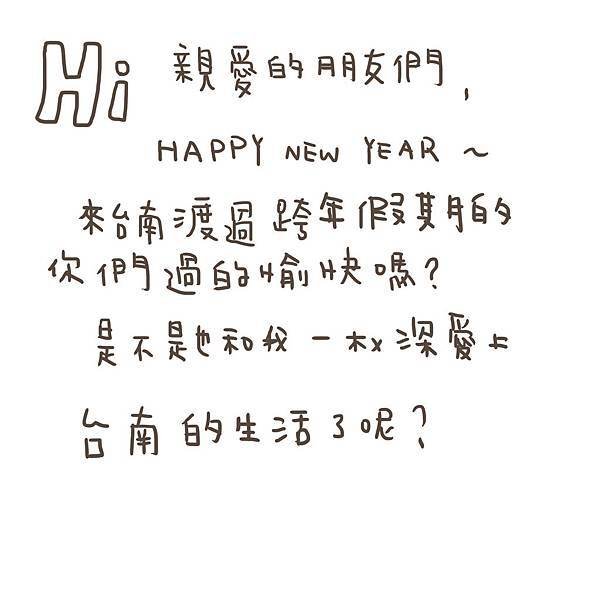 Hi 親愛的朋友們,
HAPPY NEW YEAR ~
來台南渡過跨年假期的
你們過的愉快嗎?
是不是也和我一木x深愛上
台南的生活了呢?